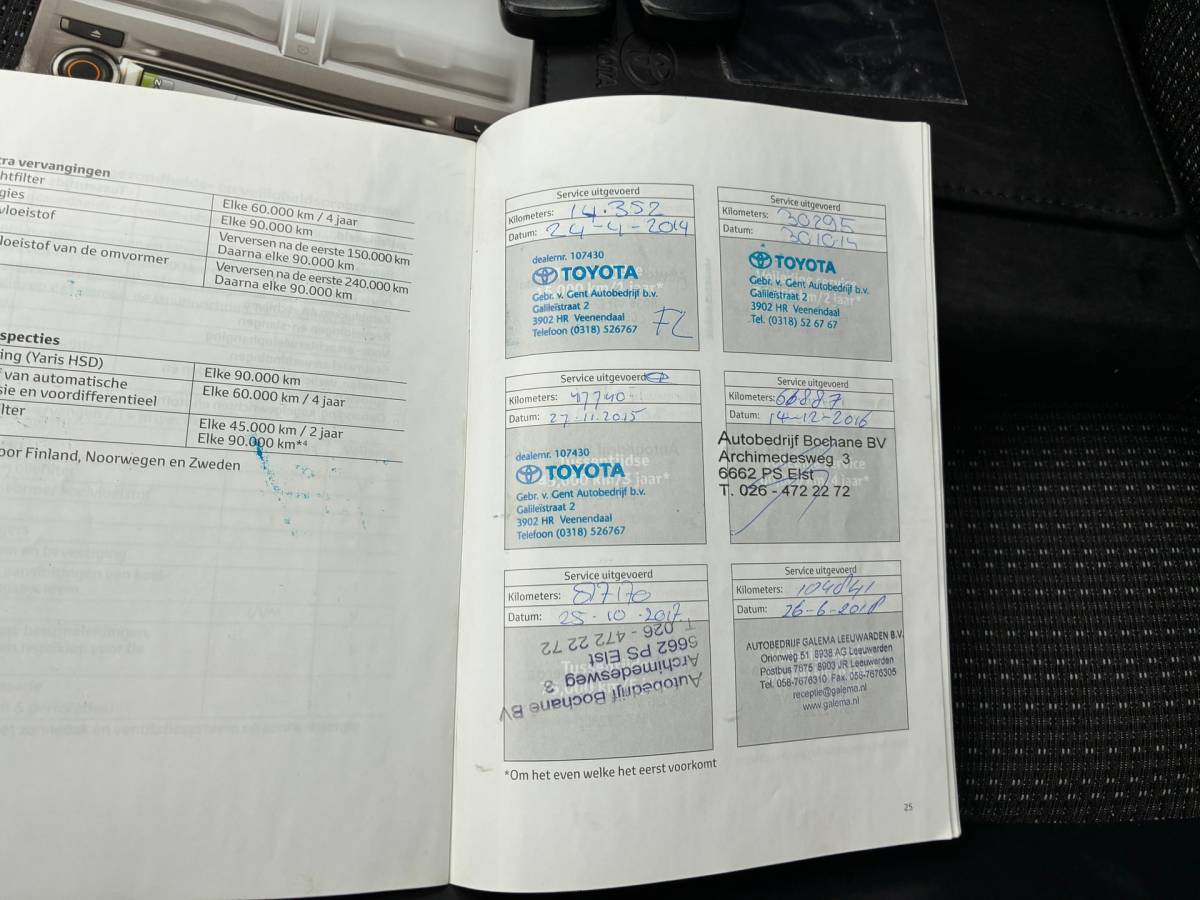 tra vervangingen
htfilter
Elke 60.000 km / 4 jaar
gies
Elke 90.000 km
vloeistof
Verversen na de eerste 150.000 km
Daarna elke 90.000 km
loeistof van de omvormer
Verversen na de eerste 240.000 km
Daarna elke 90.000 km
specties
ing (Yaris HSD)
Elke 90.000 km
f van automatische
sie en voordifferentieel
Elke 60.000 km / 4 jaar
ilter
Elke 45.000 km / 2 jaar
Elke 90.000 km*⁴
oor Finland, Noorwegen en Zweden
Service uitgevoerd
Kilometers: 14.352
Datum: 24-4-2014
dealernr. 107430
TOYOTA
Gebr. v. Gent Autobedrijf b.v.
Galileïstraat 2
3902 HR Veenendaal
Telefoon (0318) 526767
Service uitgevoerd
Kilometers: 30295
Datum: 301014
TOYOTA
Gebr. v. Gent Autobedrijf b.v.
Galileïstraat 2
3902 HR Veenendaal
Tel. (0318) 52 67 67
Service uitgevoerd
Kilometers: 47740
Datum: 27-11-2015
dealernr. 107430
TOYOTA
Gebr. v. Gent Autobedrijf b.v.
Galileïstraat 2
3902 HR Veenendaal
Telefoon (0318) 526767
Service uitgevoerd
Kilometers: 66887
Datum: 14-12-2016
Autobedrijf Bochane BV
Archimedesweg 3
6662 PS Elst
T. 026 - 472 22 72
Service uitgevoerd
Kilometers: 87170
Datum: 25-10-2017
Autobedrijf Bochane BV
Archimedesweg 3
6662 PS Elst
T. 026 - 472 22 72
Service uitgevoerd
Kilometers: 104841
Datum: 26-6-2018
AUTOBEDRIJF GALEMA LEEUWARDEN B.V.
Orionweg 51 8938 AG Leeuwarden
Postbus 7675 8903 JR Leeuwarden
Tel. 058-7676310 Fax. 058-7676305
receptie@galema.nl
www.galema.nl
*Om het even welke het eerst voorkomt
25